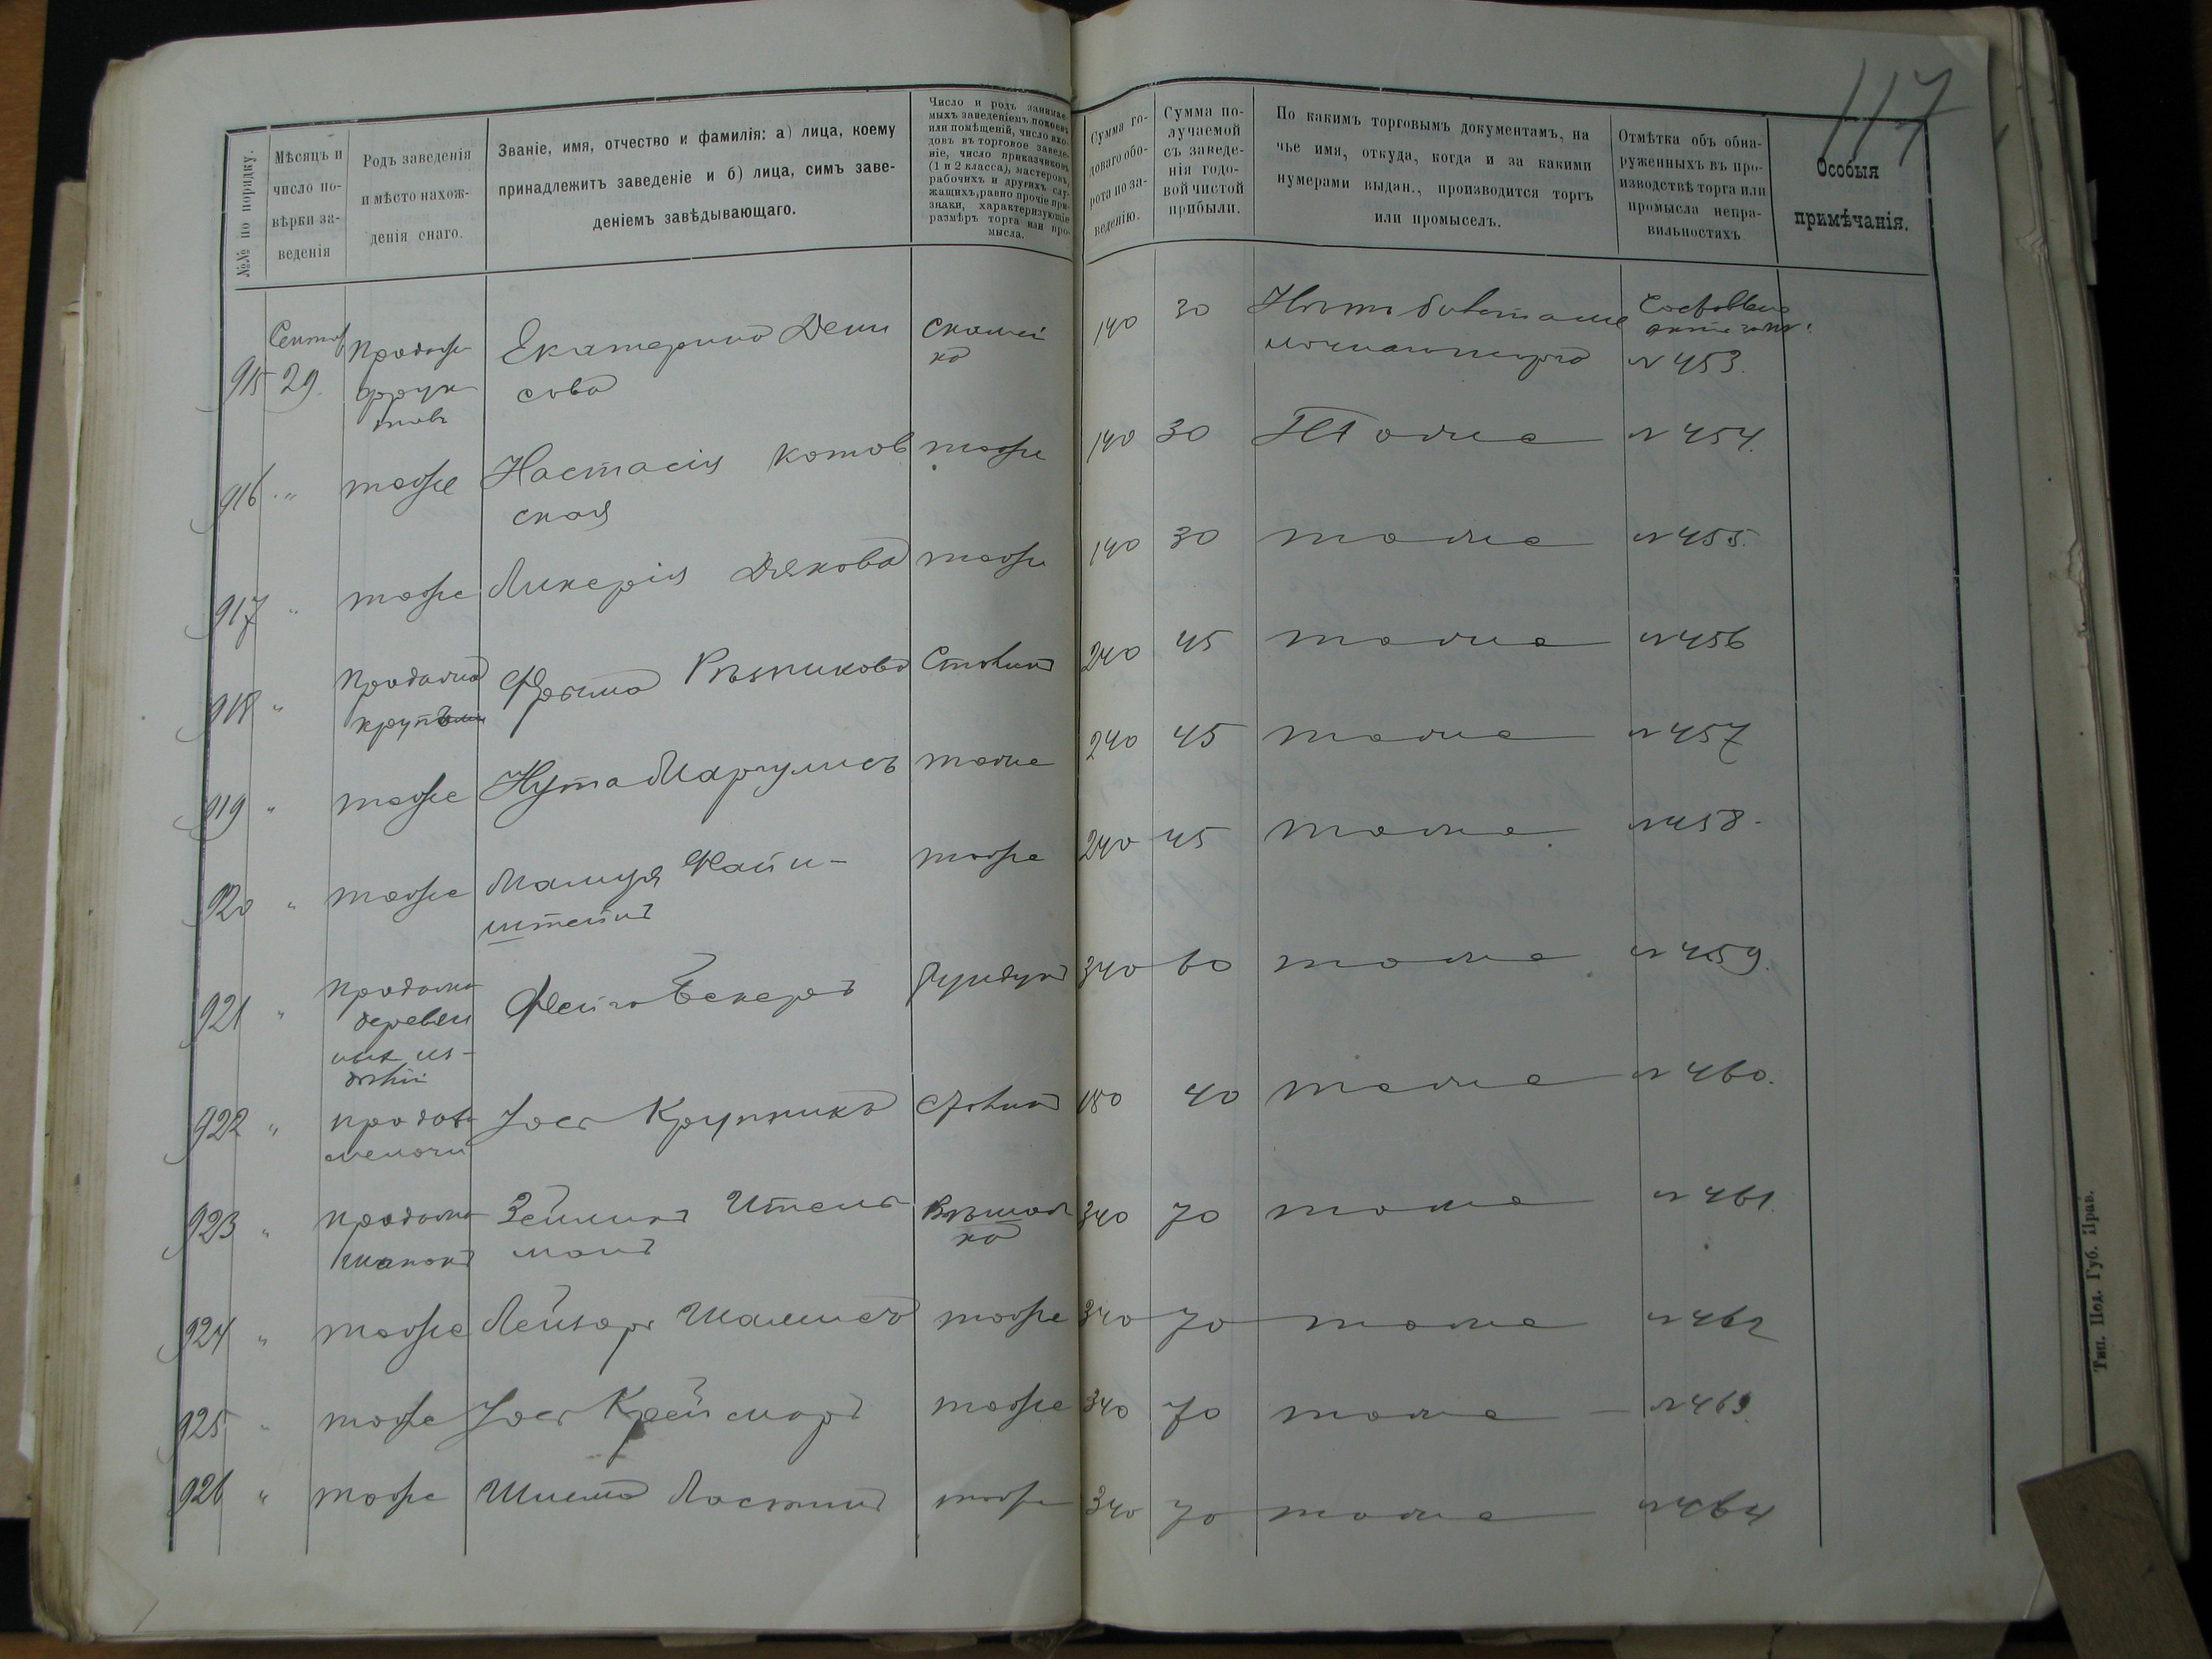 117
№№ по порядку.
Мѣсяцъ и
число по-
вѣрки за-
веденія
Родъ заведенія
и мѣсто нахож-
денія онаго.
Званіе, имя, отчество и фамилія: а) лица, коему
принадлежитъ заведеніе и б) лица, симъ заве-
деніемъ завѣдывающаго.
Число и родъ занимае-
мыхъ заведеніемъ покоевъ
или помѣщеній, число вхо-
довъ въ торговое заведе-
ніе, число приказчиковъ
(1 и 2 класса), мастеровъ,
рабочихъ и другихъ слу-
жащихъ, равно прочіе при-
знаки, характеризующіе
размѣръ торга или про-
мысла.
Сумма го-
доваго обо-
рота по за-
веденію.
Сумма по-
лучаемой
съ заведе-
нія годо-
вой чистой
прибыли.
По какимъ торговымъ документамъ, на
чье имя, откуда, когда и за какими
нумерами выдан., производится торгъ
или промыселъ.
Отмѣтка объ обна-
руженныхъ въ про-
изводствѣ торга или
промысла непра-
вильностяхъ.
Особыя
примѣчанія.
915 29. Продажа Екатерина Дени Скамей 140 30
фрук сова ка № 453.
товъ
916 " тоже Настасія Котов тоже 140 30 Тоже № 454.
ская
917 " тоже Ликерія Дякова тоже 140 30 тоже № 455.
918 " Продажа Фрыма Рѣзникова Столикъ 240 45 тоже № 456
919 " тоже Нута Маргулисъ тоже 240 45 тоже № 457
920 " тоже Файн- тоже 240 45 тоже № 458.
штейнъ
921 " Продажа Фейга Бекеръ Рундукъ 340 60 тоже № 459.
деревян
ныхъ из-
дѣлій
922 " продажа Іосъ Крупникъ Столикъ 180 40 тоже № 460.
мелочи
923 " продажа Зейликъ Ительс Вѣшал 340 70 тоже № 461.
шапокъ манъ ка
924 " тоже Лейзоръ тоже 340 70 тоже № 462
925 " тоже Іосъ Крейсмаръ тоже 340 70 тоже № 463.
926 " тоже Шлема Ластинъ тоже 340 70 тоже № 464
Тип. Под. Губ. Прав.